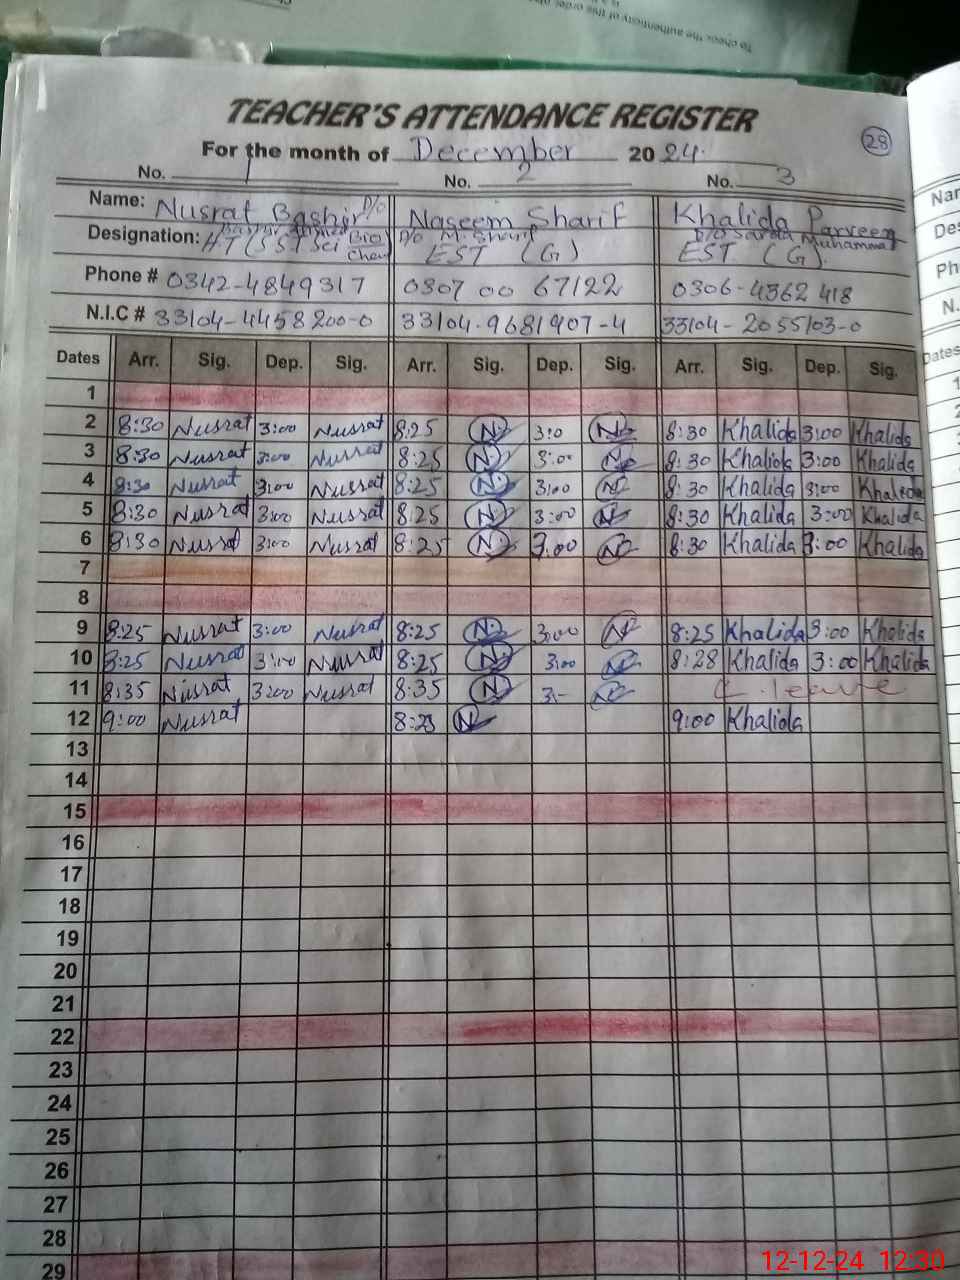 To check the authenticity of this order
TEACHER'S ATTENDANCE REGISTER
28
For the month of December 2024.
No. 1 No. 2 No. 3
Name: Nusrat Bashir D/O Naseem Sharif Khalida Parveen
Designation: HT (SST Sci Bio Chem D/o M. Sharif EST (G) D/O Sardar Muhammad EST (G).
Phone # 0342-4849317 0307 00 67122 0306-4362 418
N.I.C # 33104-4458200-0 33104-9681907-4 33104-2055103-0
Dates Arr. Sig. Dep. Sig. Arr. Sig. Dep. Sig. Arr. Sig. Dep. Sig.
1
2 8:30 Nusrat 3:00 Nusrat 8:25 N 3:0 N 8:30 Khalida 3:00 Khalida
3 8:30 Nusrat 3:00 Nusrat 8:25 N 3:00 N 8:30 Khalida 3:00 Khalida
4 8:30 Nusrat 3:00 Nusrat 8:25 N 3:00 N 8:30 Khalida 3:00 Khaleda
5 8:30 Nusrat 3:00 Nusrat 8:25 N 3:00 N 8:30 Khalida 3:00 Khalida
6 8:30 Nusrat 3:00 Nusrat 8:25 N 3:00 N 8:30 Khalida 3:00 Khalida
7
8
9 8:25 Nusrat 3:00 Nusrat 8:25 N 3:00 N 8:25 Khalida 3:00 Khalida
10 8:25 Nusrat 3:00 Nusrat 8:25 N 3:00 N 8:28 Khalida 3:00 Khalida
11 8:35 Nusrat 3:00 Nusrat 8:35 N 3:- N C. leave
12 9:00 Nusrat 8:25 N 9:00 Khalida
13
14
15
16
17
18
19
20
21
22
23
24
25
26
27
28
29
12-12-24 12:30